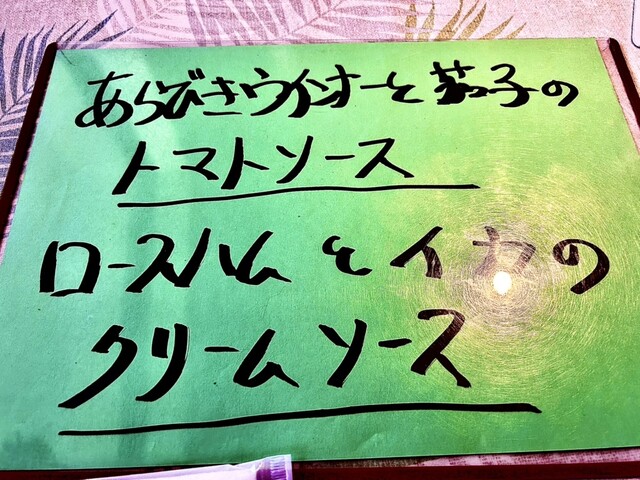 あらびきウインナーと茄子の
トマトソース
ロースハムとイカの
クリームソース